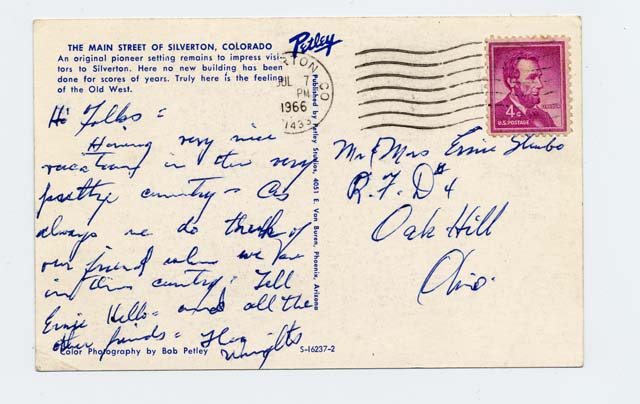 THE MAIN STREET OF SILVERTON, COLORADO
An original pioneer setting remains to impress visi-
tors to Silverton. Here no new building has been
done for scores of years. Truly here is the feeling
of the Old West.
Petley
RTON, CO
JUL 7
PM
1966
4¢
U.S. POSTAGE
Published by Petley Studios, 4051 E. Van Buren, Phoenix, Arizona
Hi Folks =
Having very nice
vacation in this very
pretty country - As
always we do think of
our friend when we are
in this country. Tell
Ernie Hello - and all the
other friends =
Wrights
Mr & Mrs Ernie
R.F.D #4
Oak Hill
Ohio.
Color Photography by Bob Petley
S-16237-2